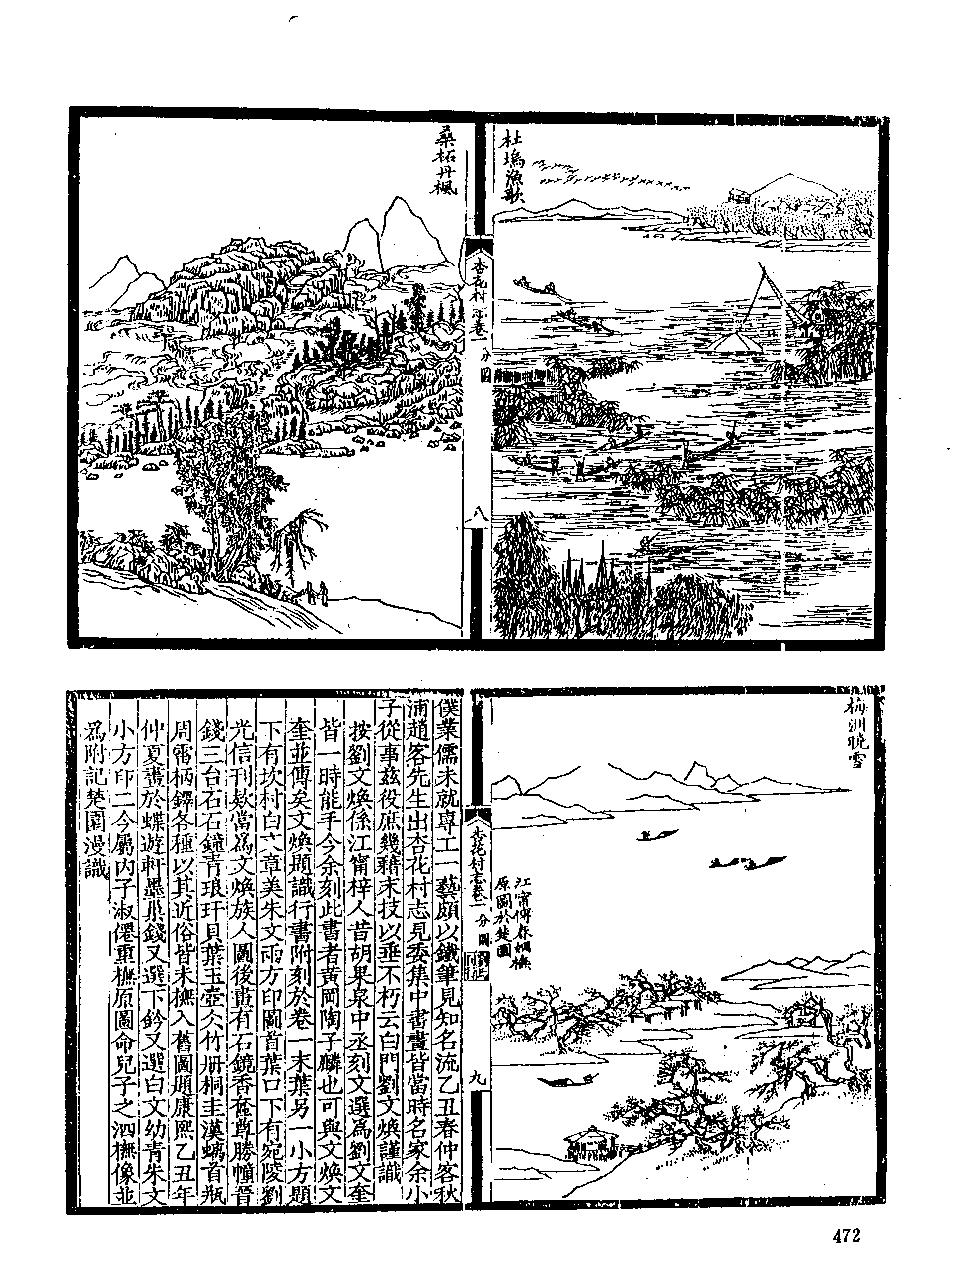 杜塢漁歌
杏花村志卷一 分圖
八
桑柘丹楓
梅洲曉雪
江甯傅春桐橅
原圖於楚園
杏花村志卷一 分圖
九
僕業儒未就專工一藝頗以鐵筆見知名流乙丑春仲客秋
浦趙客先生出杏花村志見委集中書畫皆當時名家余小
子從事茲役庶幾藉末技以垂不朽云白門劉文煥謹識
按劉文煥係江甯梓人昔胡果泉中丞刻文選爲劉文奎
皆一時能手今余刻此書者黃岡陶子麟也可與文煥文
奎並傳矣文煥題識行書附刻於卷一末葉另一小方題
下有坎村白文章美朱文兩方印圖首葉口下有宛陵劉
光信刊欵當爲文煥族人圖後畫有石鏡香奩尊勝幢晉
錢三台石石鐘青琅玕貝葉玉壺仌竹册桐圭漢螭首瓶
周雷柄鐸各種以其近俗皆未橅入舊圖題康熙乙丑年
仲夏畫於蝶遊軒墨巢錢又選下鈐又選白文幼青朱文
小方印二今屬內子淑僊重橅原圖命兒子之泗橅像並
爲附記楚園漫識
472